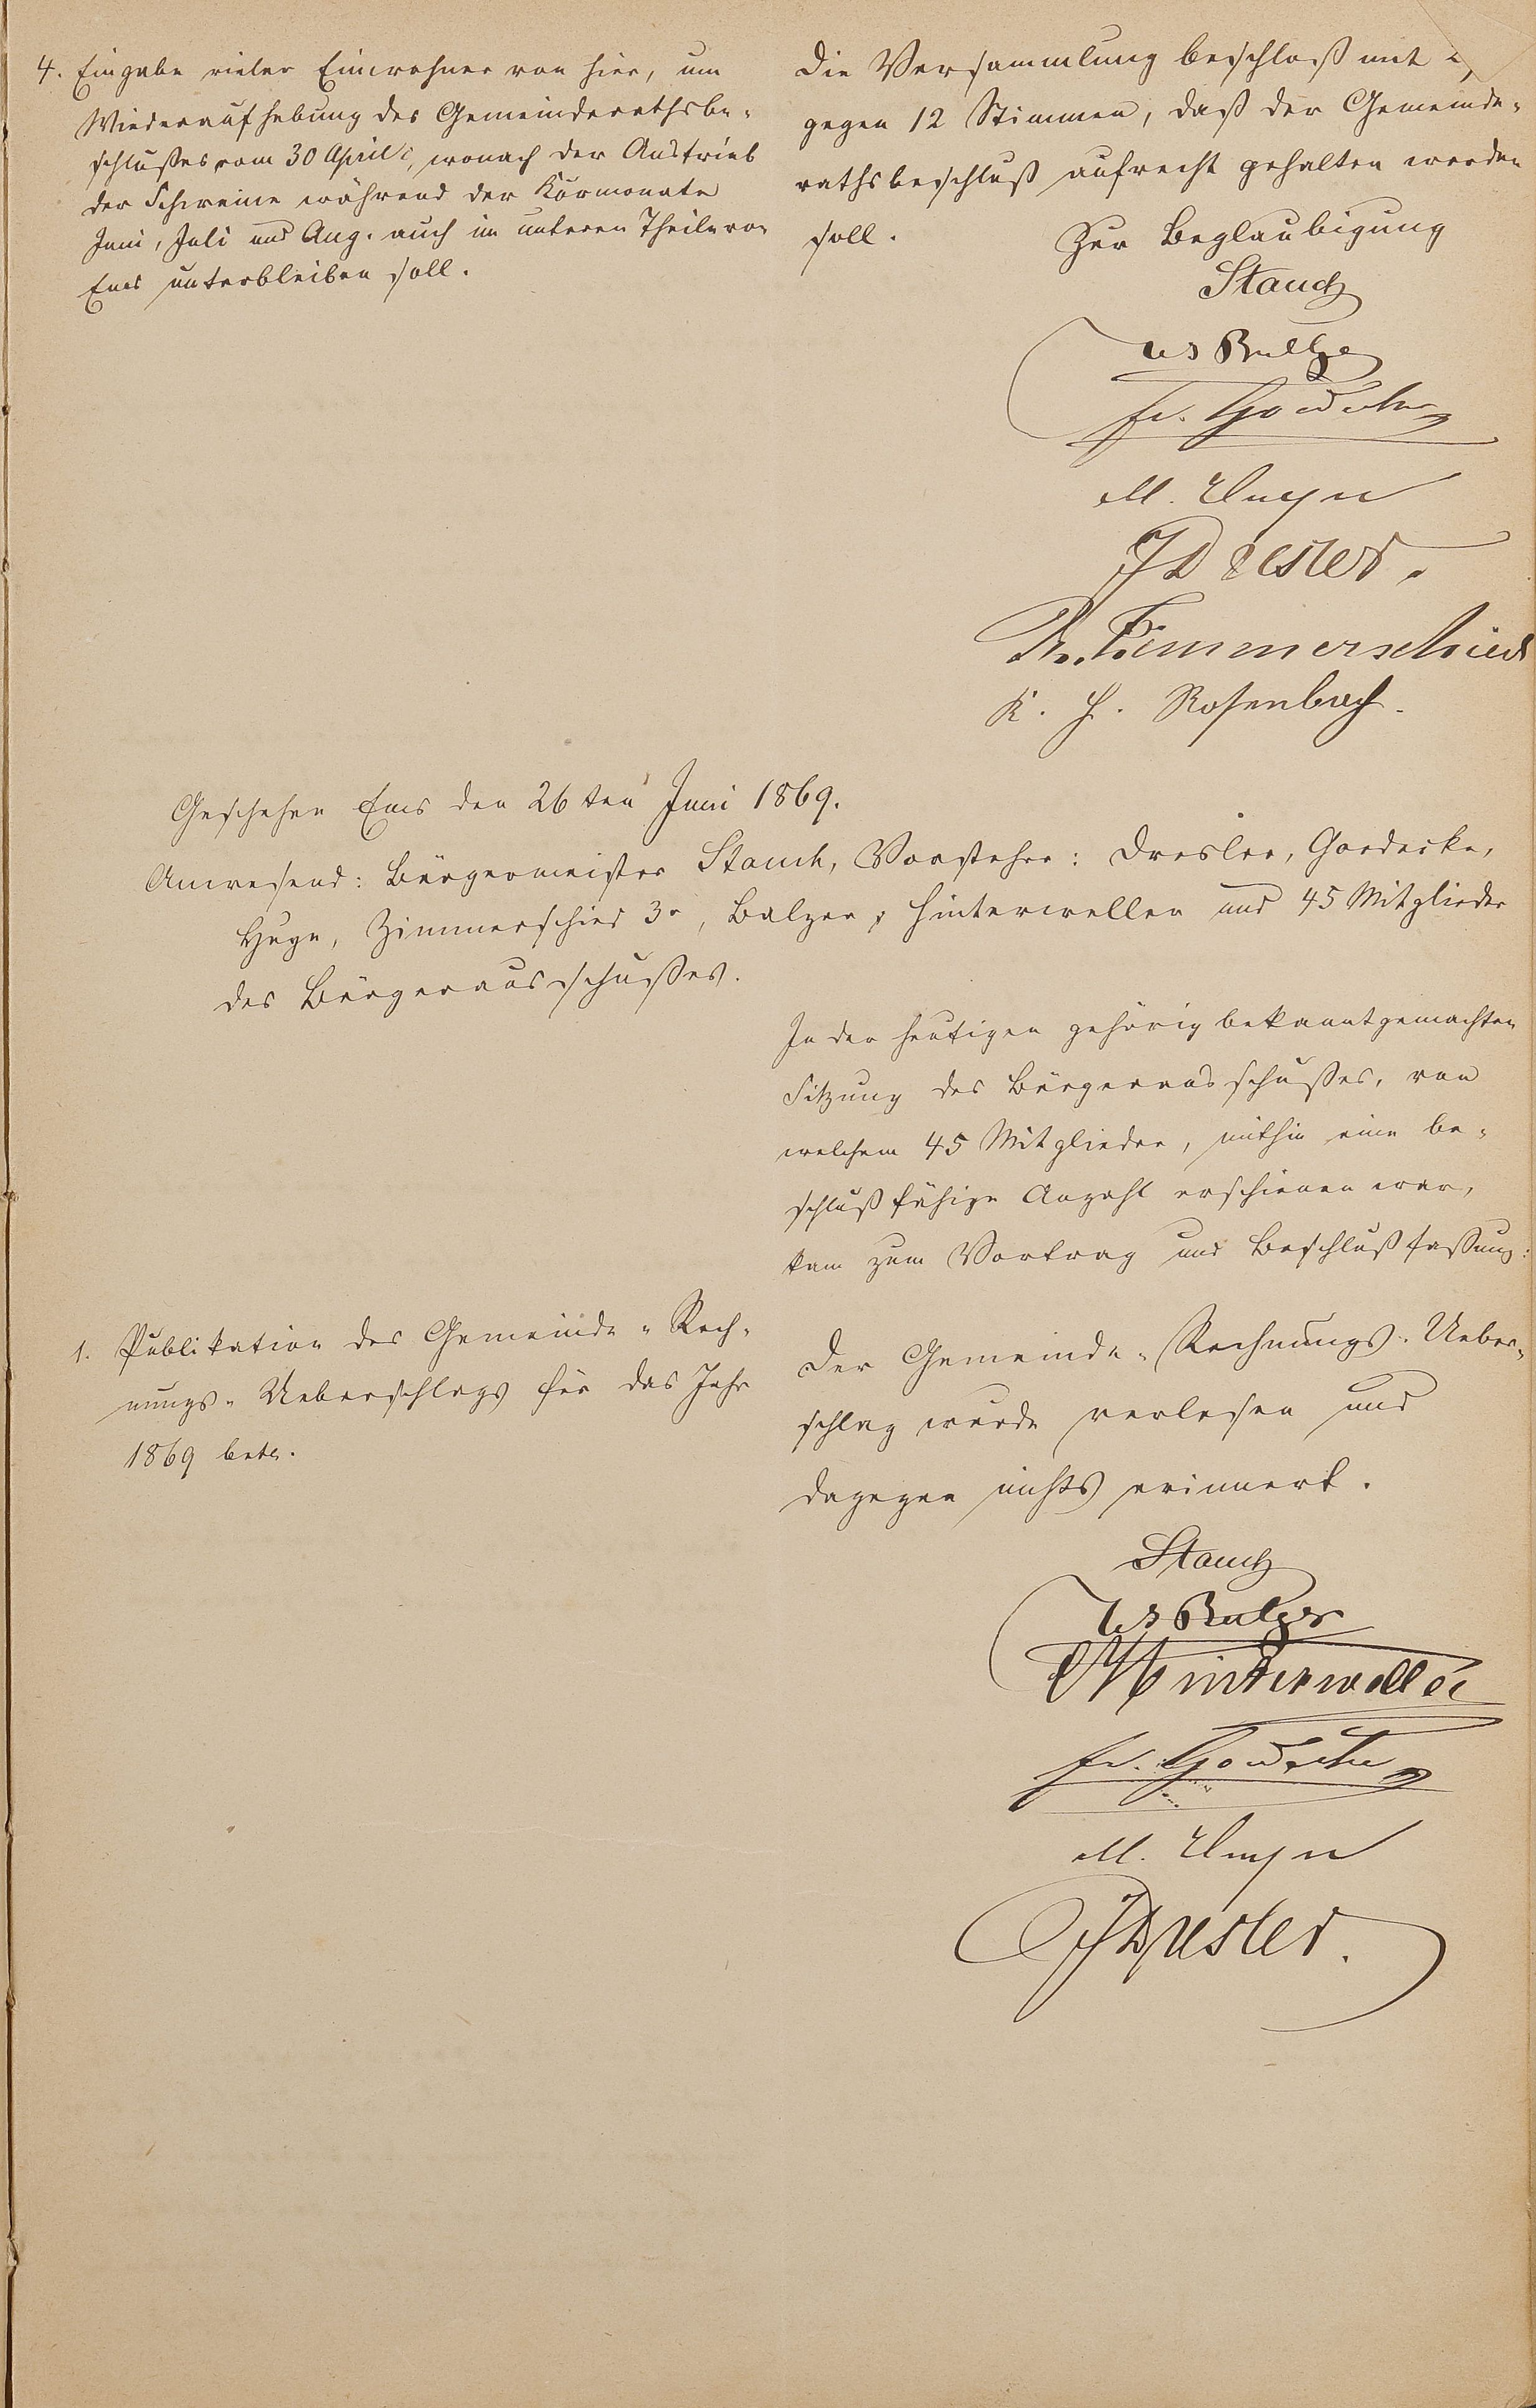 4. Eingabe vieler Einwohner von hier, um
Wiederaufhebung des Gemeinderathsbe-
schlußes vom 30 April, wonach der Austrieb
der Schweine während der Kurmonate
Juni, Juli und Aug. auch im unteren Theile von
Ems unterbleiben soll.
Die Versammlung beschloß mit
gegen 12 Stimmen, daß der Gemeinde-
rathsbeschluß aufrecht gehalten werden
soll.
Zur Beglaubigung
Stauch
Balzer
Fr. Goedecke
M. Huyn
J Dresler.
Zimmerschied
K. H. Rosenbach.
Geschehen Ems den 26ten Juni 1869.
Anwesend: Bürgermeister Stauch, Vorsteher: Dresler, Goedecke,
Zimmerschied 3r, Balzer, Hinterweller und 45 Mitglieder
des Bürgerausschußes.
In der heutigen gehörig bekanntgemachten
Sitzung des Bürgerausschußes, von
welchem 45 Mitglieder, mithin eine be-
schlußfähige Anzahl erschienen war,
kam zum Vortrag und Beschlußfassung:
1. Publikation des Gemeinde-Rech-
nungs-Ueberschlags für das Jahr
1869 betr.
Der Gemeinde-Rechnungs-Ueber-
schlag wurde verlesen und
dagegen nichts erinnert.
Stauch
Balzer
Hinterweller
Fr. Goedecke
M. Huyn
J Dresler.